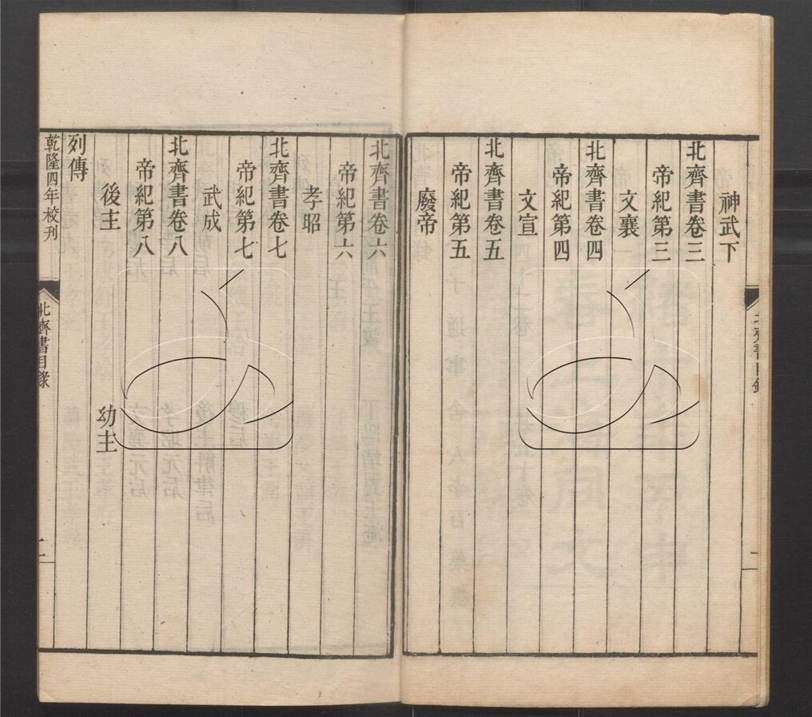 神武下
北齊書卷三
帝紀第三
文襄
北齊書卷四
帝紀第四
文宣
北齊書卷五
帝紀第五
廢帝
北齊書卷六
帝紀第六
孝昭
北齊書卷七
帝紀第七
武成
北齊書卷八
帝紀第八
後主 幼主
列傳
乾隆四年校刊
北齊書目錄
二